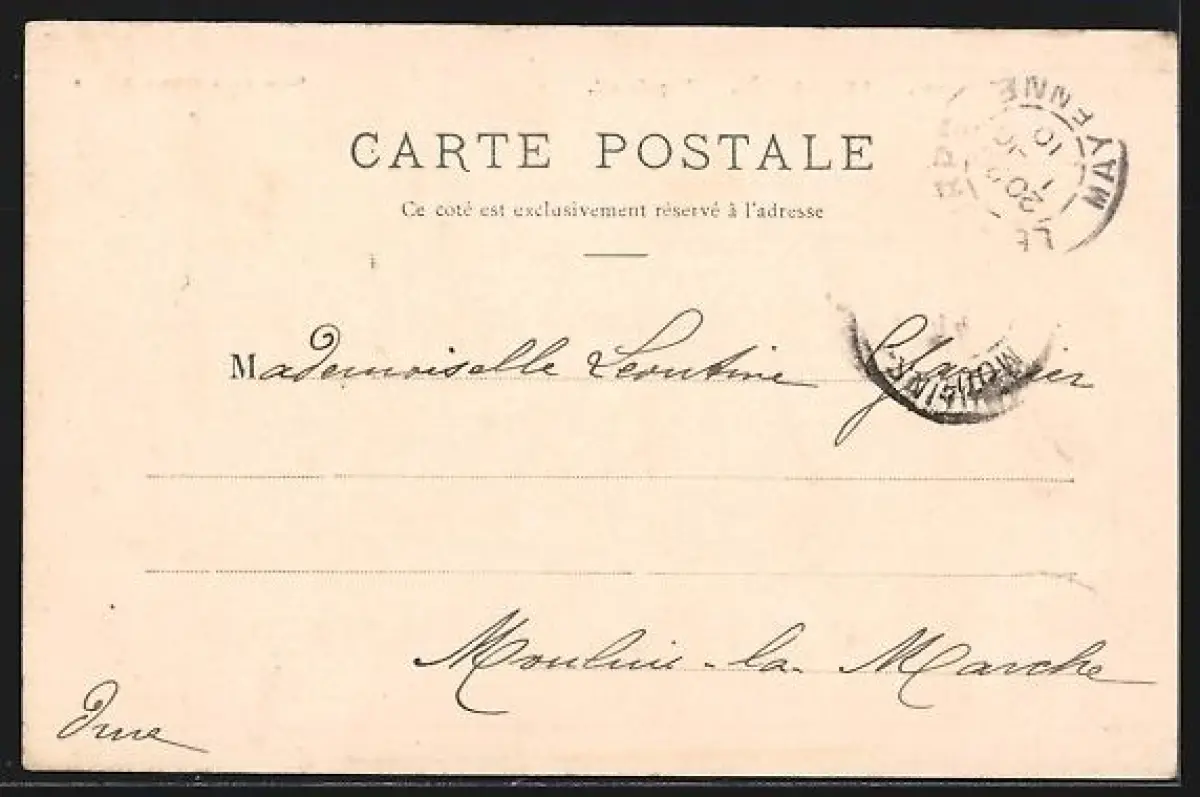 CARTE POSTALE
Ce coté est exclusivement réservé à l'adresse
LE
MAYENNE
10
20
MOULINS
Mademoiselle Léontine
Moulins-la-Marche
Orne